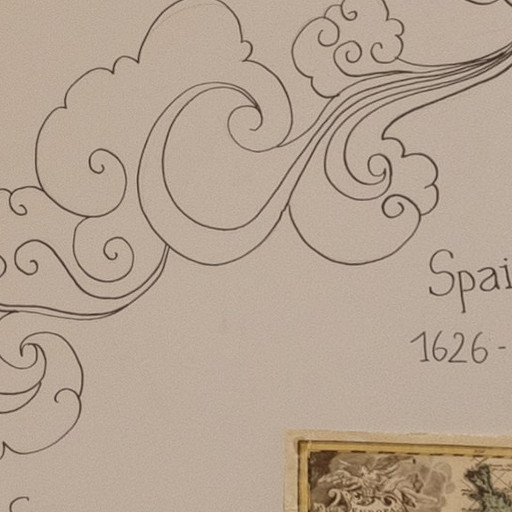 Spai
1626 -